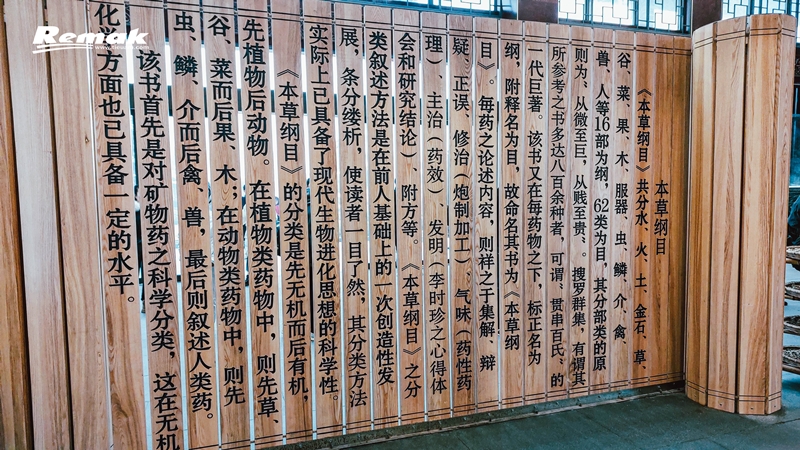 本草纲目
《本草纲目》共分水、火、土、金石、草、
谷、菜、果、木、服器、虫、鳞、介、禽、
兽、人等16部为纲，62类为目，其分部类的原
则为“从微至巨，从贱至贵”。搜罗群集，有谓其
所参考之书多达八百余种者，可谓“贯串百氏”的
一代巨著。该书又在每药物之下，标正名为
纲，附释名为目，故命名其书为《本草纲
目》。每药之论述内容，则祥之于集解、辩
疑、正误、修治（炮制加工）、气味（药性药
理）、主治（药效）、发明（李时珍之心得体
会和研究结论）、附方等。《本草纲目》之分
类叙述方法是在前人基础上的一次创造性发
展，条分缕析，使读者一目了然，其分类方法
实际上已具备了现代生物进化思想的科学性。
《本草纲目》的分类是先无机而后有机，
先植物后动物。在植物类药物中，则先草、
谷、菜而后果、木；在动物类药物中，则先
虫、鳞、介而后禽、兽，最后则叙述人类药。
该书首先是对矿物药之科学分类，这在无机
化方面也已具备一定的水平。
Remak